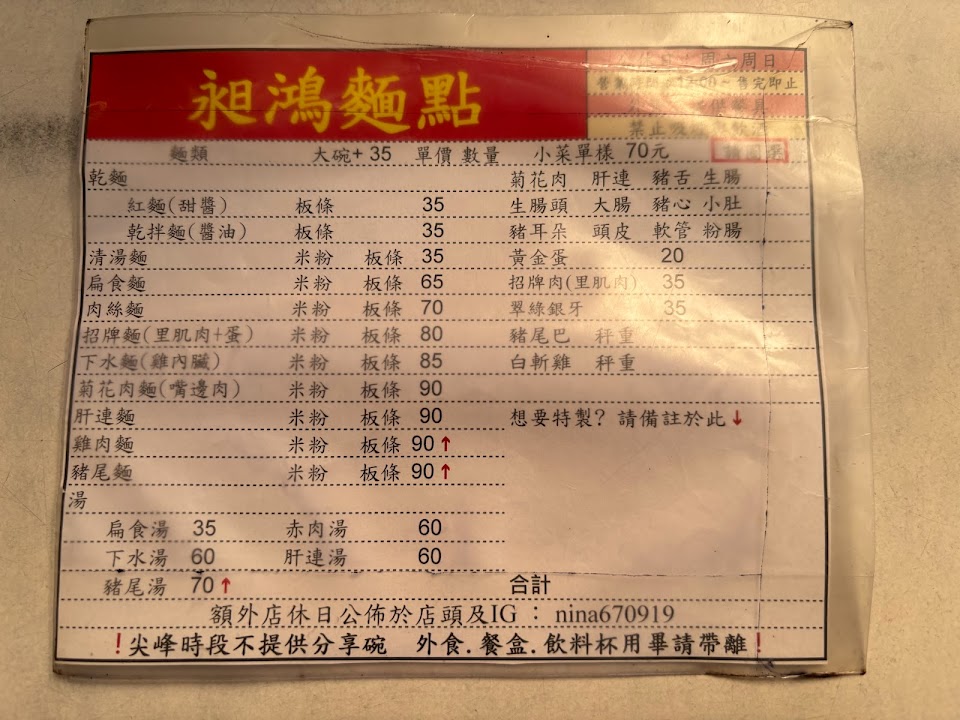 昶鴻麵點
周日
售完即止
麵類 大碗+35 單價 數量 小菜單樣 70元
乾麵 菊花肉 肝連 豬舌 生腸
紅麵(甜醬) 板條 35 生腸頭 大腸 豬心 小肚
乾拌麵(醬油) 板條 35 豬耳朵 頭皮 軟管 粉腸
清湯麵 米粉 板條 35 黃金蛋 20
扁食麵 米粉 板條 65 招牌肉(里肌肉) 35
肉絲麵 米粉 板條 70 翠綠銀牙 35
招牌麵(里肌肉+蛋) 米粉 板條 80 豬尾巴 秤重
下水麵(雞內臟) 米粉 板條 85 白斬雞 秤重
菊花肉麵(嘴邊肉) 米粉 板條 90
肝連麵 米粉 板條 90 想要特製? 請備註於此↓
雞肉麵 米粉 板條 90↑
豬尾麵 米粉 板條 90↑
湯
扁食湯 35 赤肉湯 60
下水湯 60 肝連湯 60
豬尾湯 70↑ 合計
額外店休日公佈於店頭及IG : nina670919
!尖峰時段不提供分享碗 外食.餐盒.飲料杯用畢請帶離!